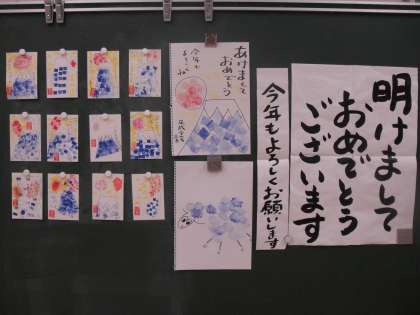 明けまして
おめでとう
ございます
今年もよろしくお願いします
あけまして
おめでとう
今年も